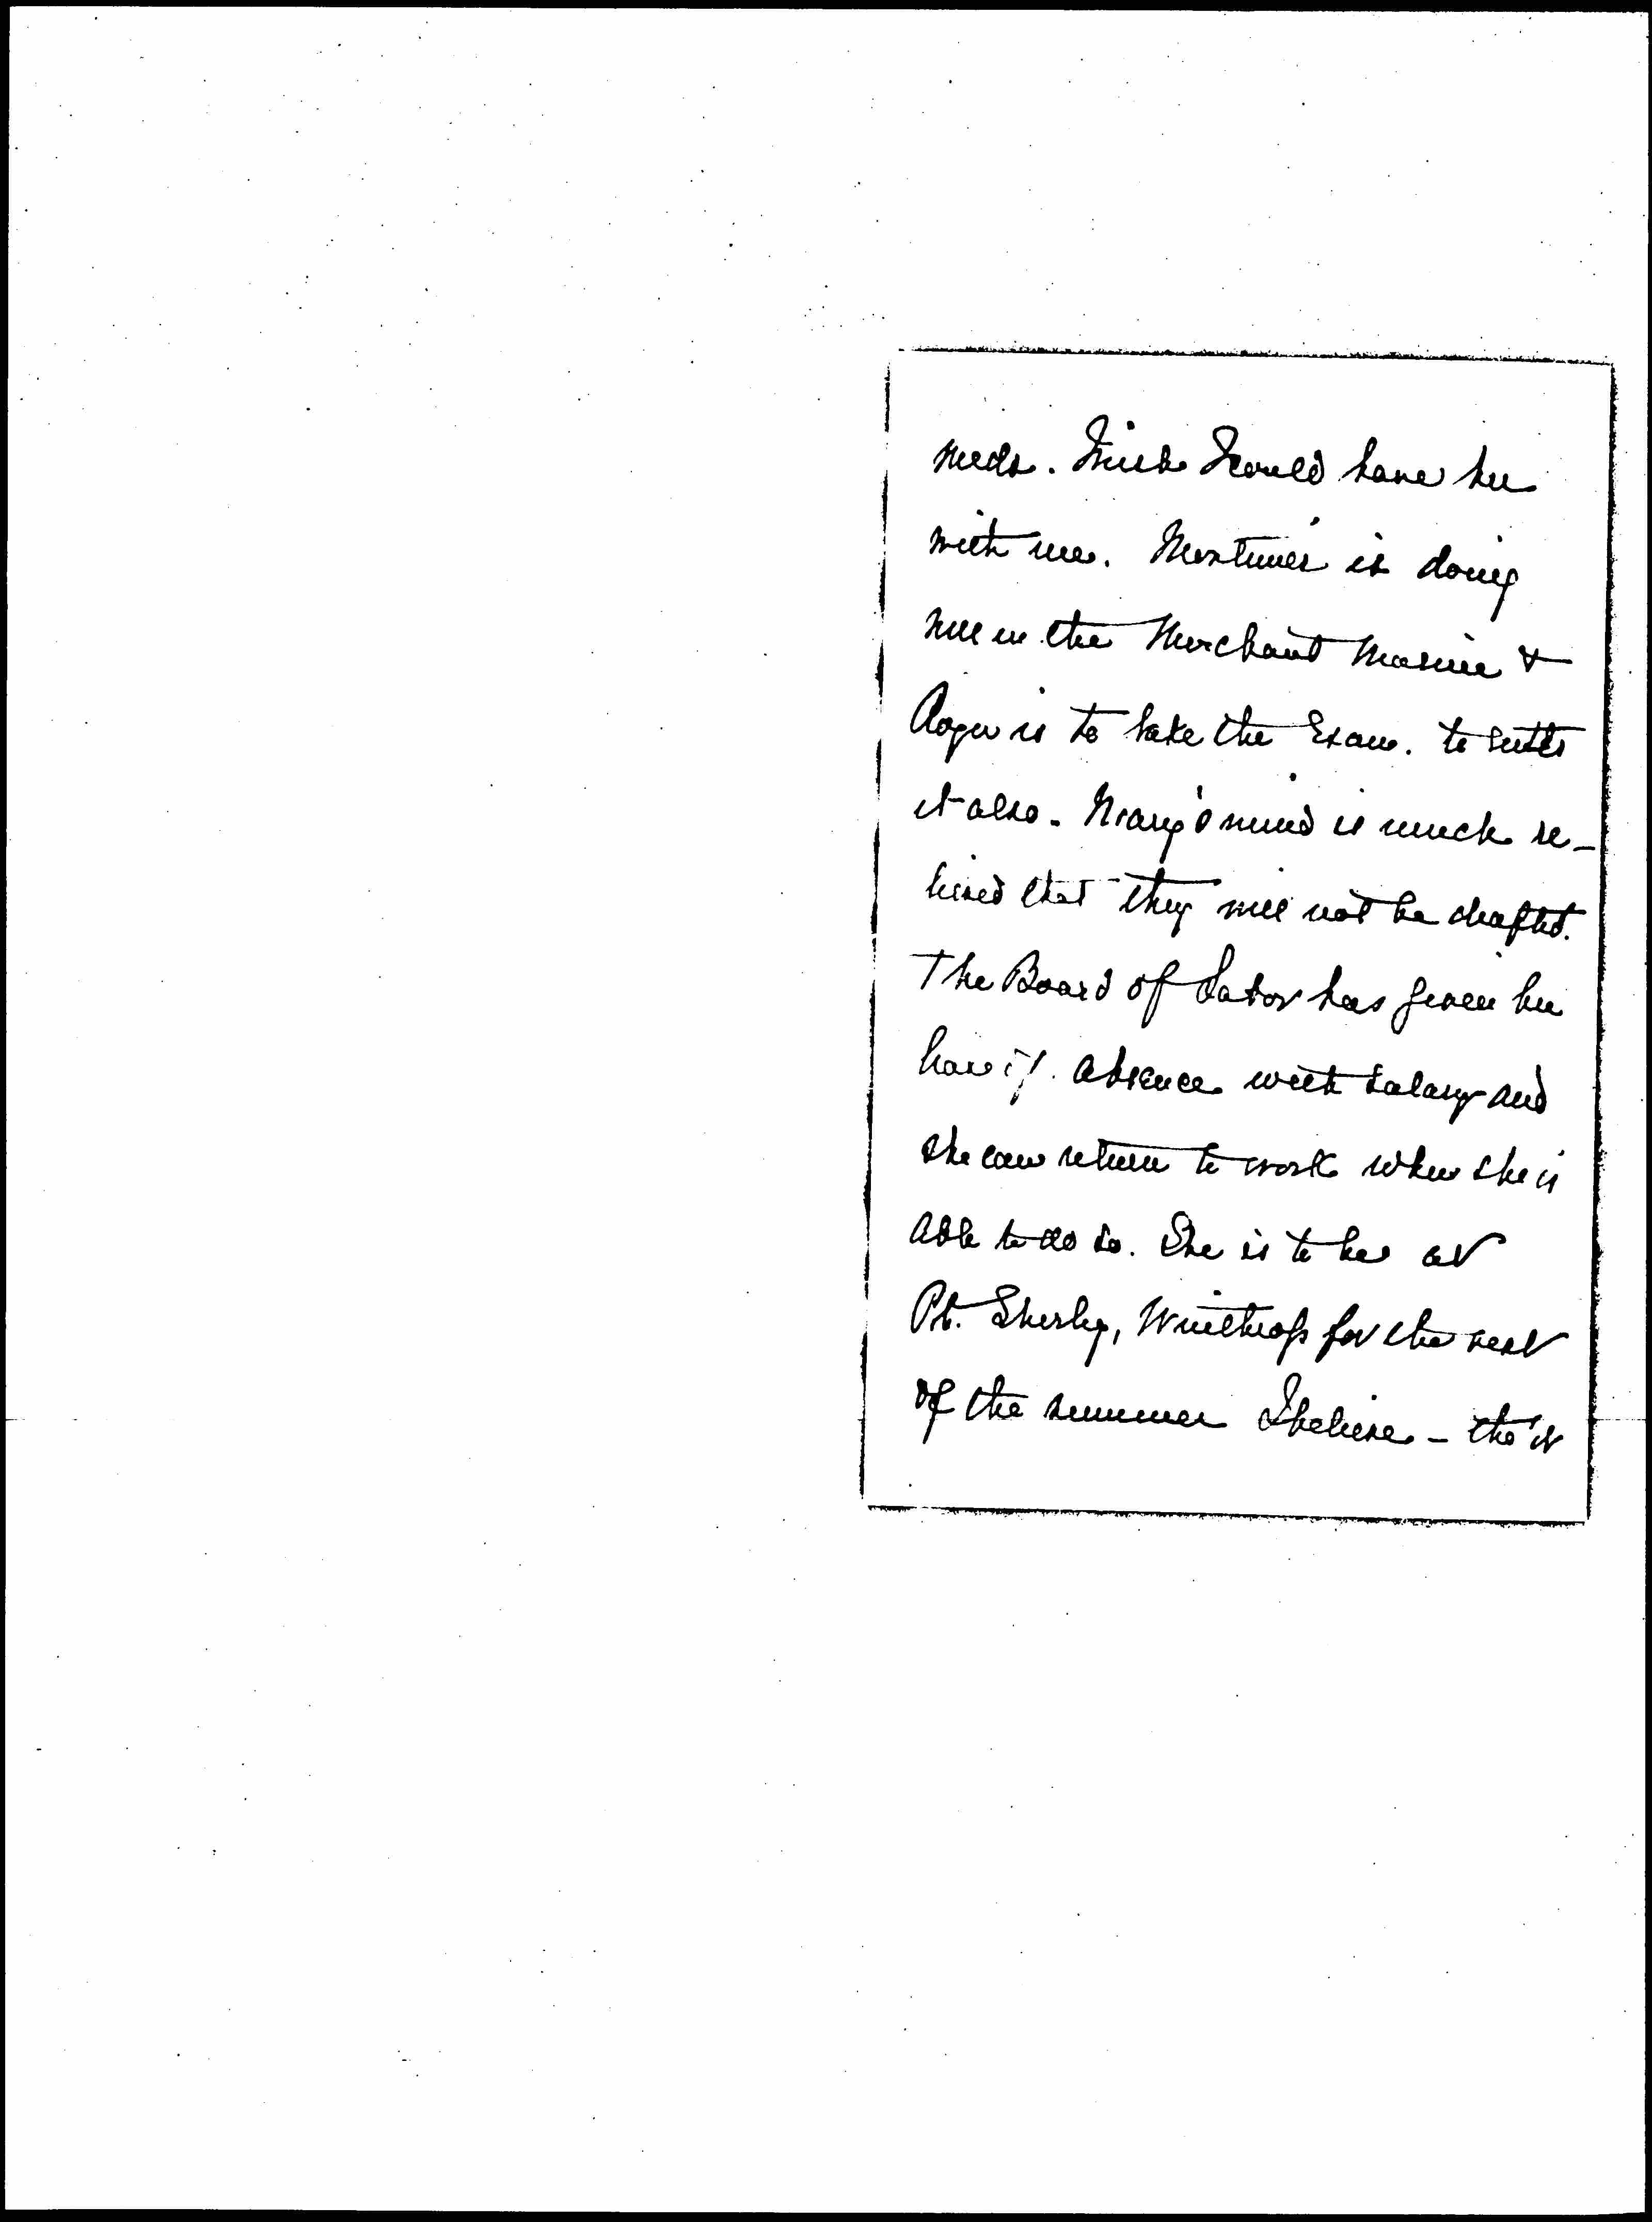 needs. Wish I could have her
with me. Mortimer is doing
well in the Merchant Marine &
Roger is to take the Exam. to enter
it also. Mary's mind is much re-
lieved that they will not be drafted.
The Board of Labor has given her
leave of absence with salary and
she can return to work when she is
able to do so. She is to be at
Pt. Shirley, Winthrop for the rest
of the summer I believe - tho' it